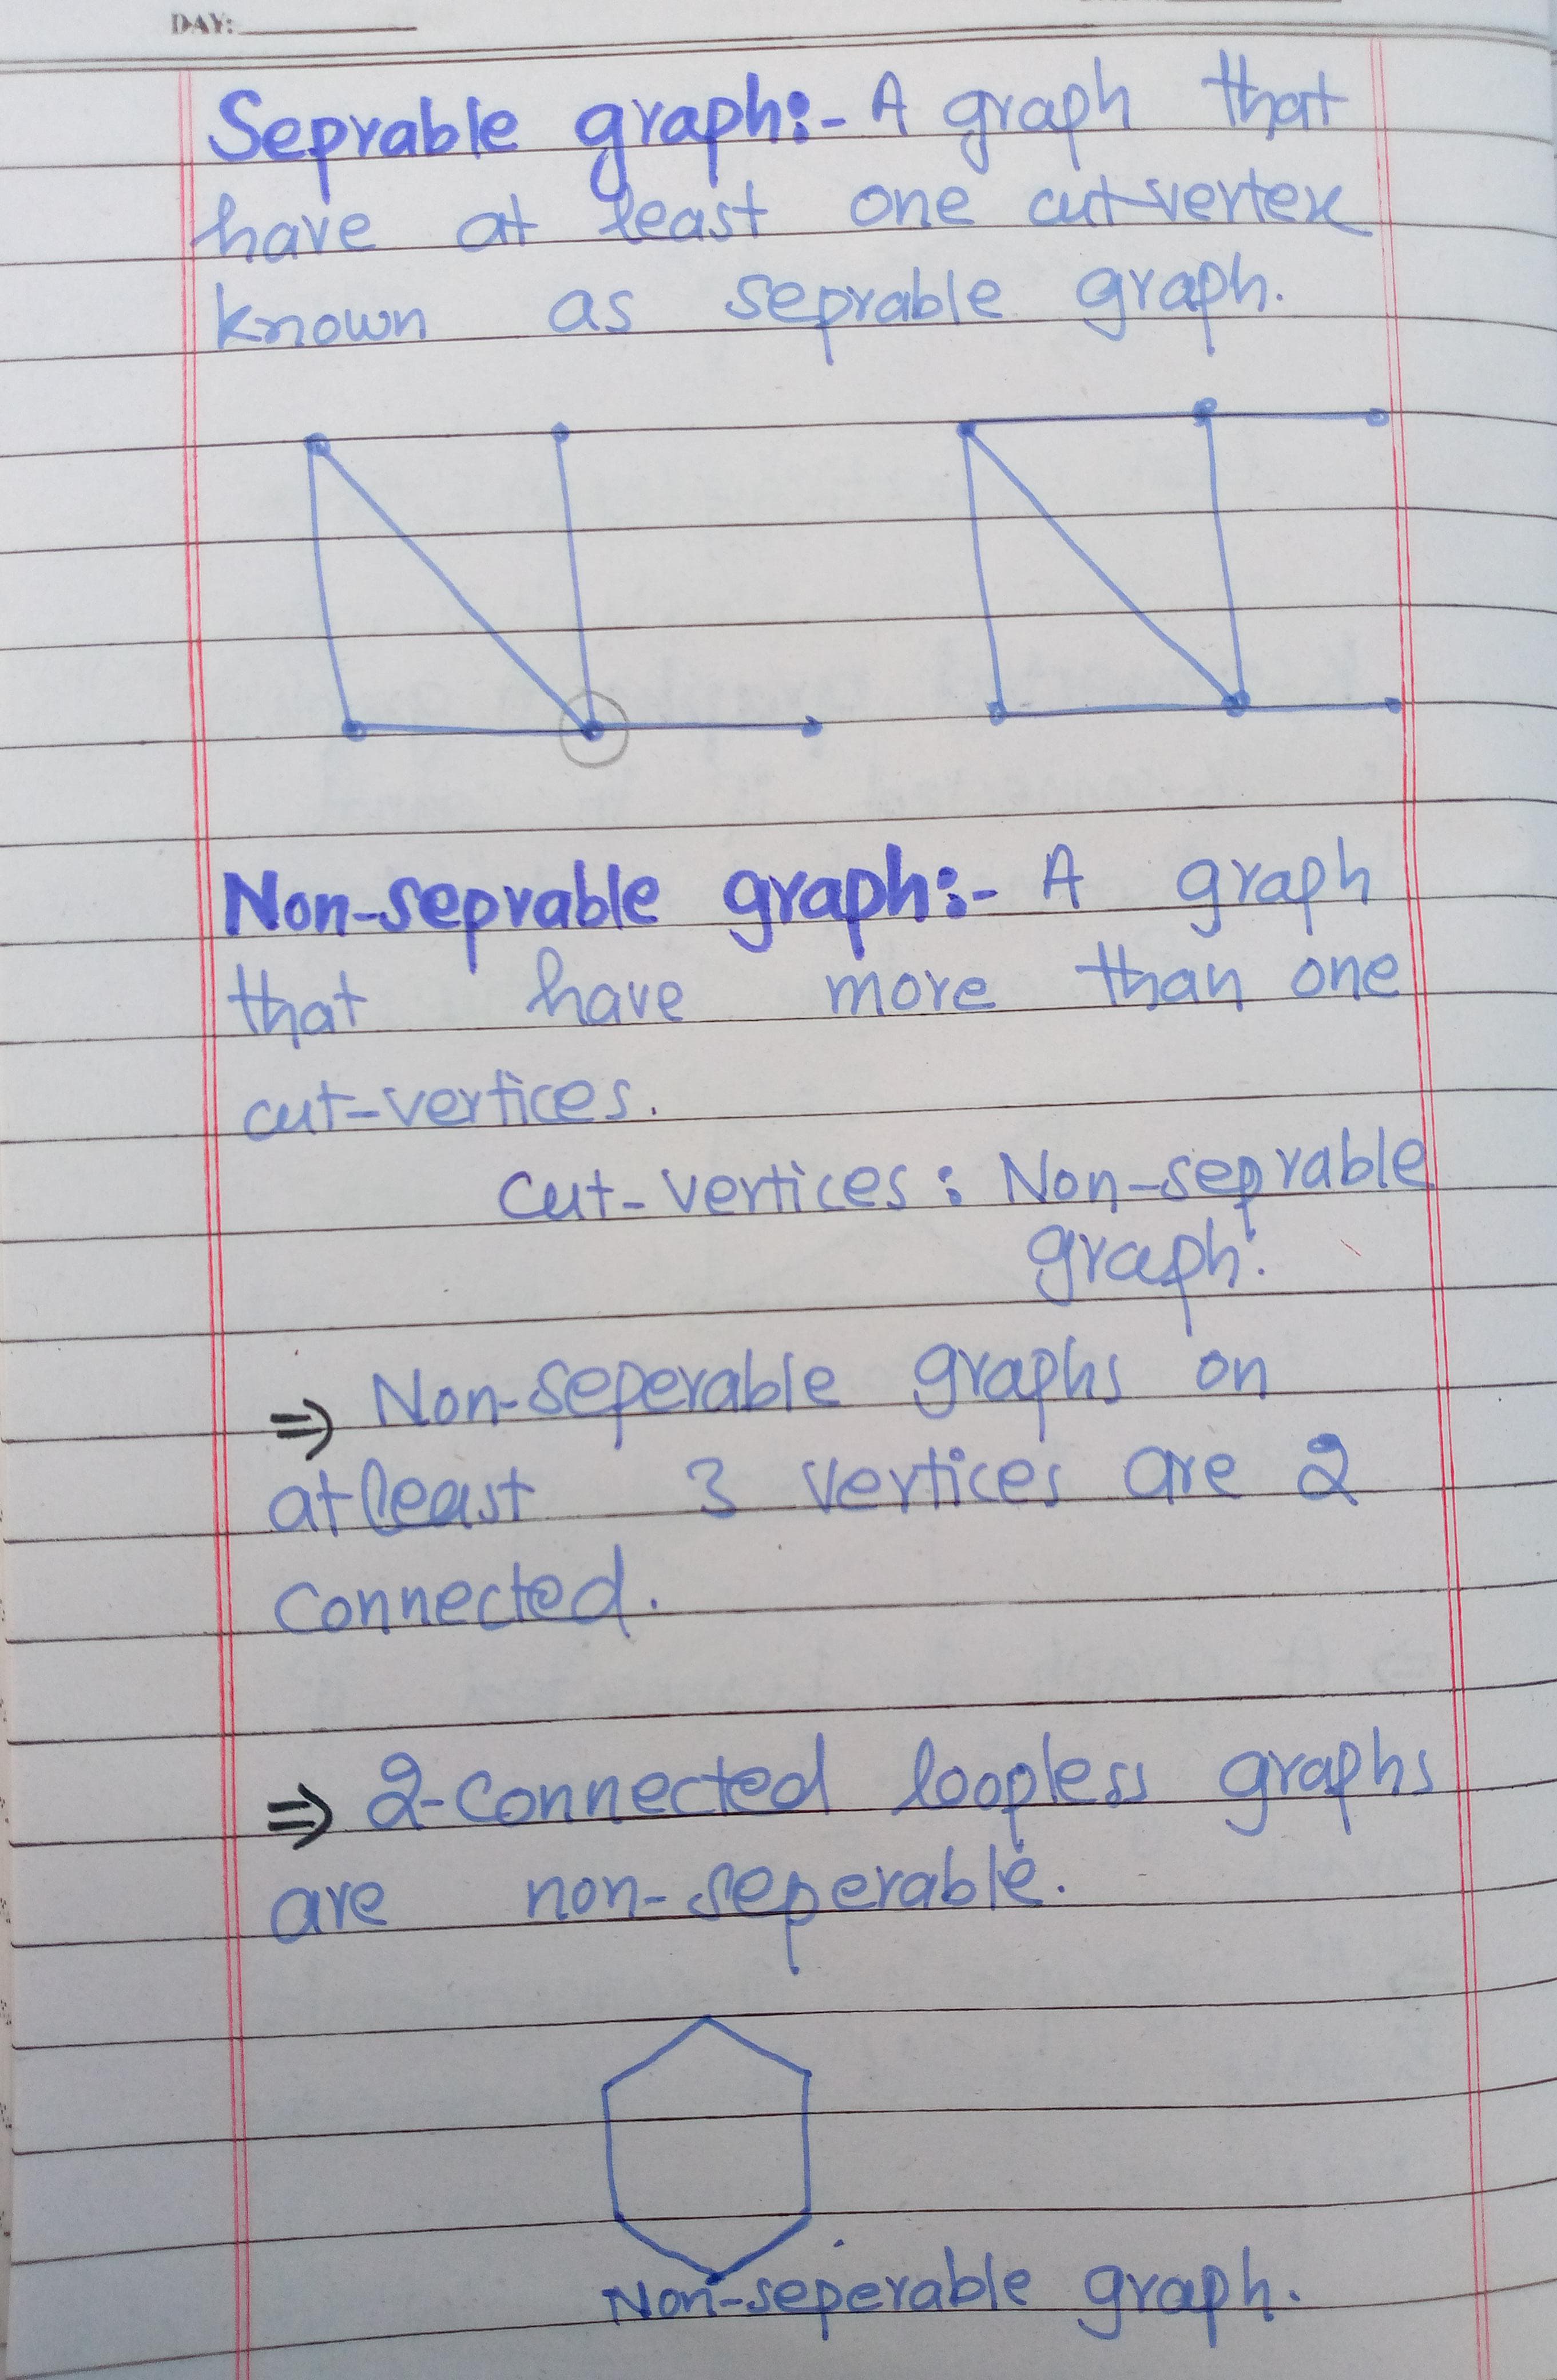 DAY:
Seprable graph:- A graph that
have at least one cut-vertex
known as seprable graph.
Non-seprable graph:- A graph
that have more than one
cut-vertices.
Cut-vertices : Non-seprable
graph.
⇒ Non-seperable graphs on
atleast 3 vertices are 2
Connected.
⇒ 2-Connected loopless graphs
are non-seperable.
Non-seperable graph.